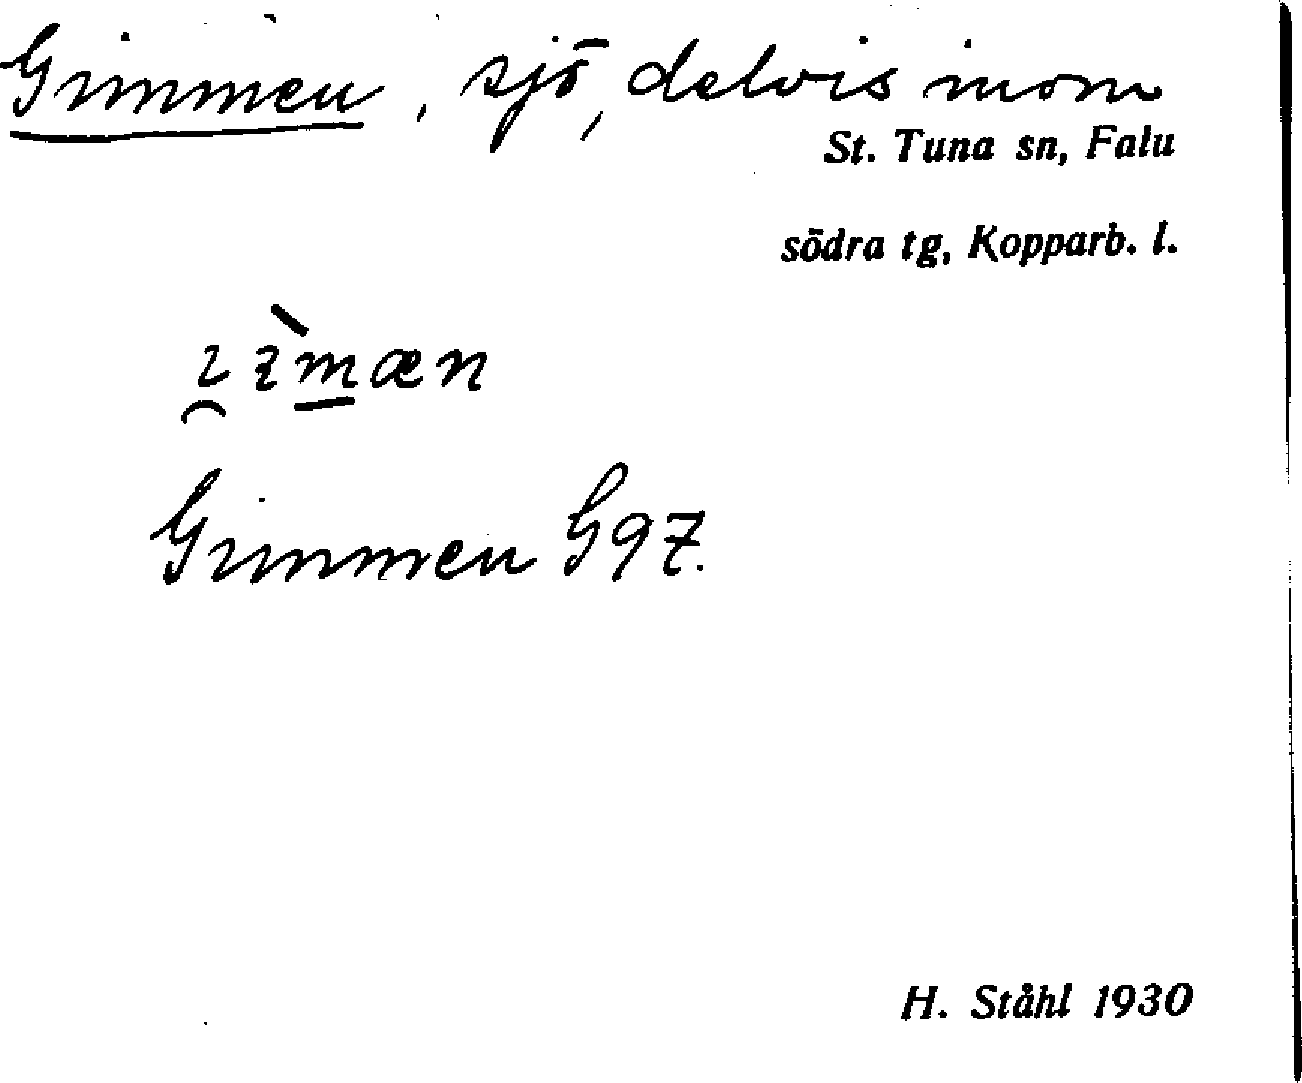 Gimmen, sjö, delvis inom
St. Tuna sn, Falu
södra tg, Kopparb. l.
Gimmen G97.
H. Ståhl 1930